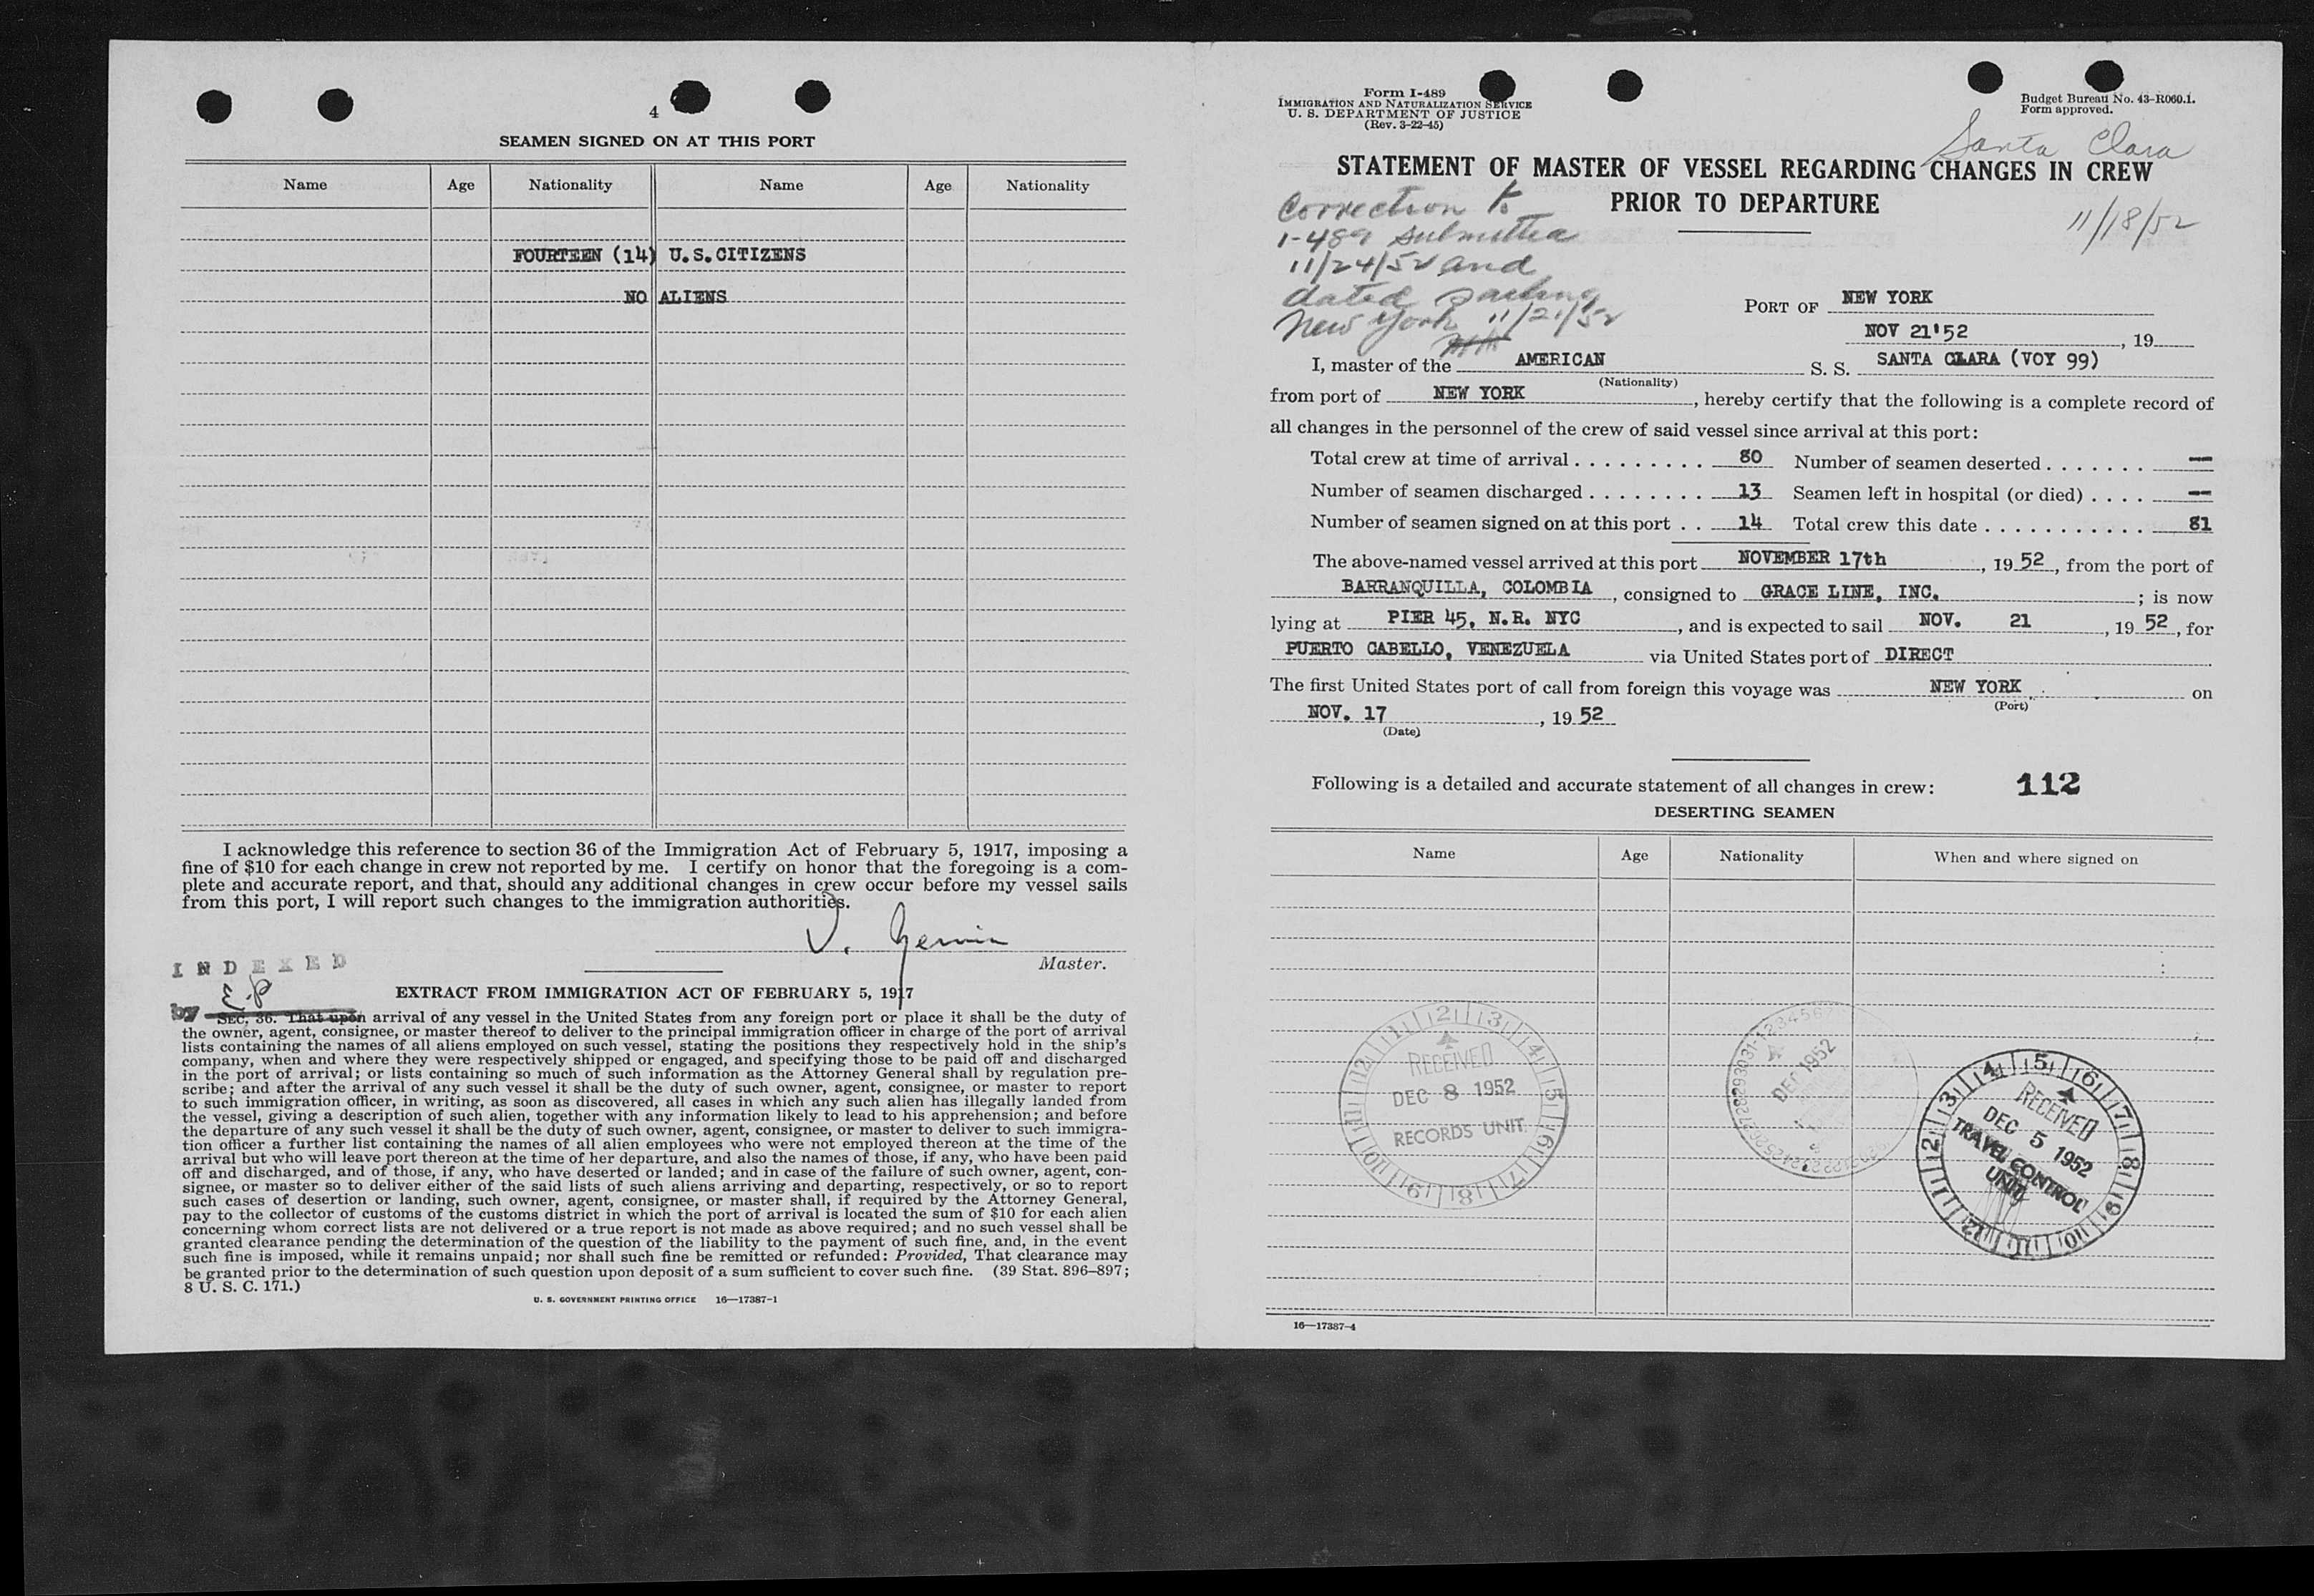 4
SEAMEN SIGNED ON AT THIS PORT
Name Age Nationality Name Age Nationality
FOURTEEN (14) U.S.CITIZENS
NO ALIENS
I acknowledge this reference to section 36 of the Immigration Act of February 5, 1917, imposing a
fine of $10 for each change in crew not reported by me. I certify on honor that the foregoing is a com-
plete and accurate report, and that, should any additional changes in crew occur before my vessel sails
from this port, I will report such changes to the immigration authorities.
Master.
INDEXED
by E.P
EXTRACT FROM IMMIGRATION ACT OF FEBRUARY 5, 1917
SEC. 36. That upon arrival of any vessel in the United States from any foreign port or place it shall be the duty of
the owner, agent, consignee, or master thereof to deliver to the principal immigration officer in charge of the port of arrival
lists containing the names of all aliens employed on such vessel, stating the positions they respectively hold in the ship's
company, when and where they were respectively shipped or engaged, and specifying those to be paid off and discharged
in the port of arrival; or lists containing so much of such information as the Attorney General shall by regulation pre-
scribe; and after the arrival of any such vessel it shall be the duty of such owner, agent, consignee, or master to report
to such immigration officer, in writing, as soon as discovered, all cases in which any such alien has illegally landed from
the vessel, giving a description of such alien, together with any information likely to lead to his apprehension; and before
the departure of any such vessel it shall be the duty of such owner, agent, consignee, or master to deliver to such immigra-
tion officer a further list containing the names of all alien employees who were not employed thereon at the time of the
arrival but who will leave port thereon at the time of her departure, and also the names of those, if any, who have been paid
off and discharged, and of those, if any, who have deserted or landed; and in case of the failure of such owner, agent, con-
signee, or master so to deliver either of the said lists of such aliens arriving and departing, respectively, or so to report
such cases of desertion or landing, such owner, agent, consignee, or master shall, if required by the Attorney General,
pay to the collector of customs of the customs district in which the port of arrival is located the sum of $10 for each alien
concerning whom correct lists are not delivered or a true report is not made as above required; and no such vessel shall be
granted clearance pending the determination of the question of the liability to the payment of such fine, and, in the event
such fine is imposed, while it remains unpaid; nor shall such fine be remitted or refunded: Provided, That clearance may
be granted prior to the determination of such question upon deposit of a sum sufficient to cover such fine. (39 Stat. 896–897;
8 U. S. C. 171.)
U. S. GOVERNMENT PRINTING OFFICE 16—17387-1
Form I-489
IMMIGRATION AND NATURALIZATION SERVICE
U. S. DEPARTMENT OF JUSTICE
(Rev. 3-22-45)
Budget Bureau No. 43-R060.1.
Form approved.
Santa Clara
STATEMENT OF MASTER OF VESSEL REGARDING CHANGES IN CREW
PRIOR TO DEPARTURE
11/18/52
Correction to
1-489 submitted
11/24/52 and
dated sailing
New York 11/21/52
PORT OF NEW YORK
NOV 21'52, 19
I, master of the AMERICAN S. S. SANTA CLARA (VOY 99)
(Nationality)
from port of NEW YORK, hereby certify that the following is a complete record of
all changes in the personnel of the crew of said vessel since arrival at this port:
Total crew at time of arrival . . . . . . . . . 80 Number of seamen deserted . . . . . . . —
Number of seamen discharged . . . . . . . . 13 Seamen left in hospital (or died) . . . . —
Number of seamen signed on at this port . . 14 Total crew this date . . . . . . . . . . . 81
The above-named vessel arrived at this port NOVEMBER 17th, 19 52, from the port of
BARRANQUILLA, COLOMBIA, consigned to GRACE LINE, INC.; is now
lying at PIER 45, N.R. NYC, and is expected to sail NOV. 21, 19 52, for
PUERTO CABELLO, VENEZUELA via United States port of DIRECT
The first United States port of call from foreign this voyage was NEW YORK on
(Port)
NOV. 17, 19 52
(Date)
Following is a detailed and accurate statement of all changes in crew: 112
DESERTING SEAMEN
Name Age Nationality When and where signed on
RECEIVED
DEC 8 1952
RECORDS UNIT
DEC 1952
RECEIVED
DEC 5 1952
TRAVEL CONTROL
UNIT
16—17387-4